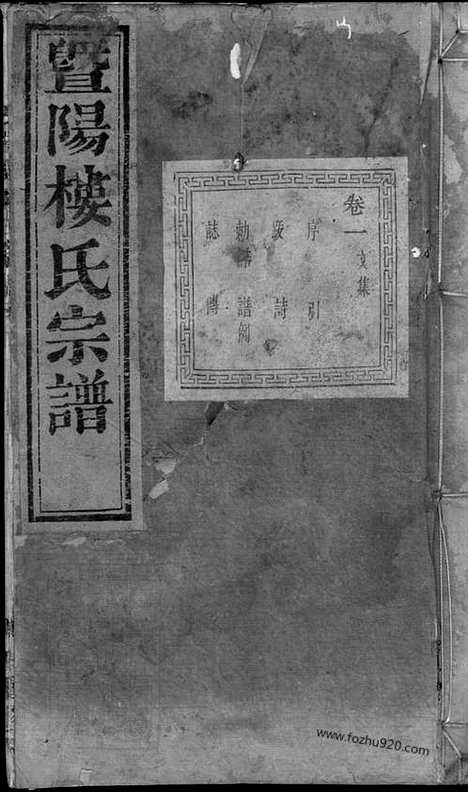 暨陽樓氏宗譜
卷一 文集
序 引
跋 詩
勅 誥 譜例
誌 傳
www.fozhu920.com